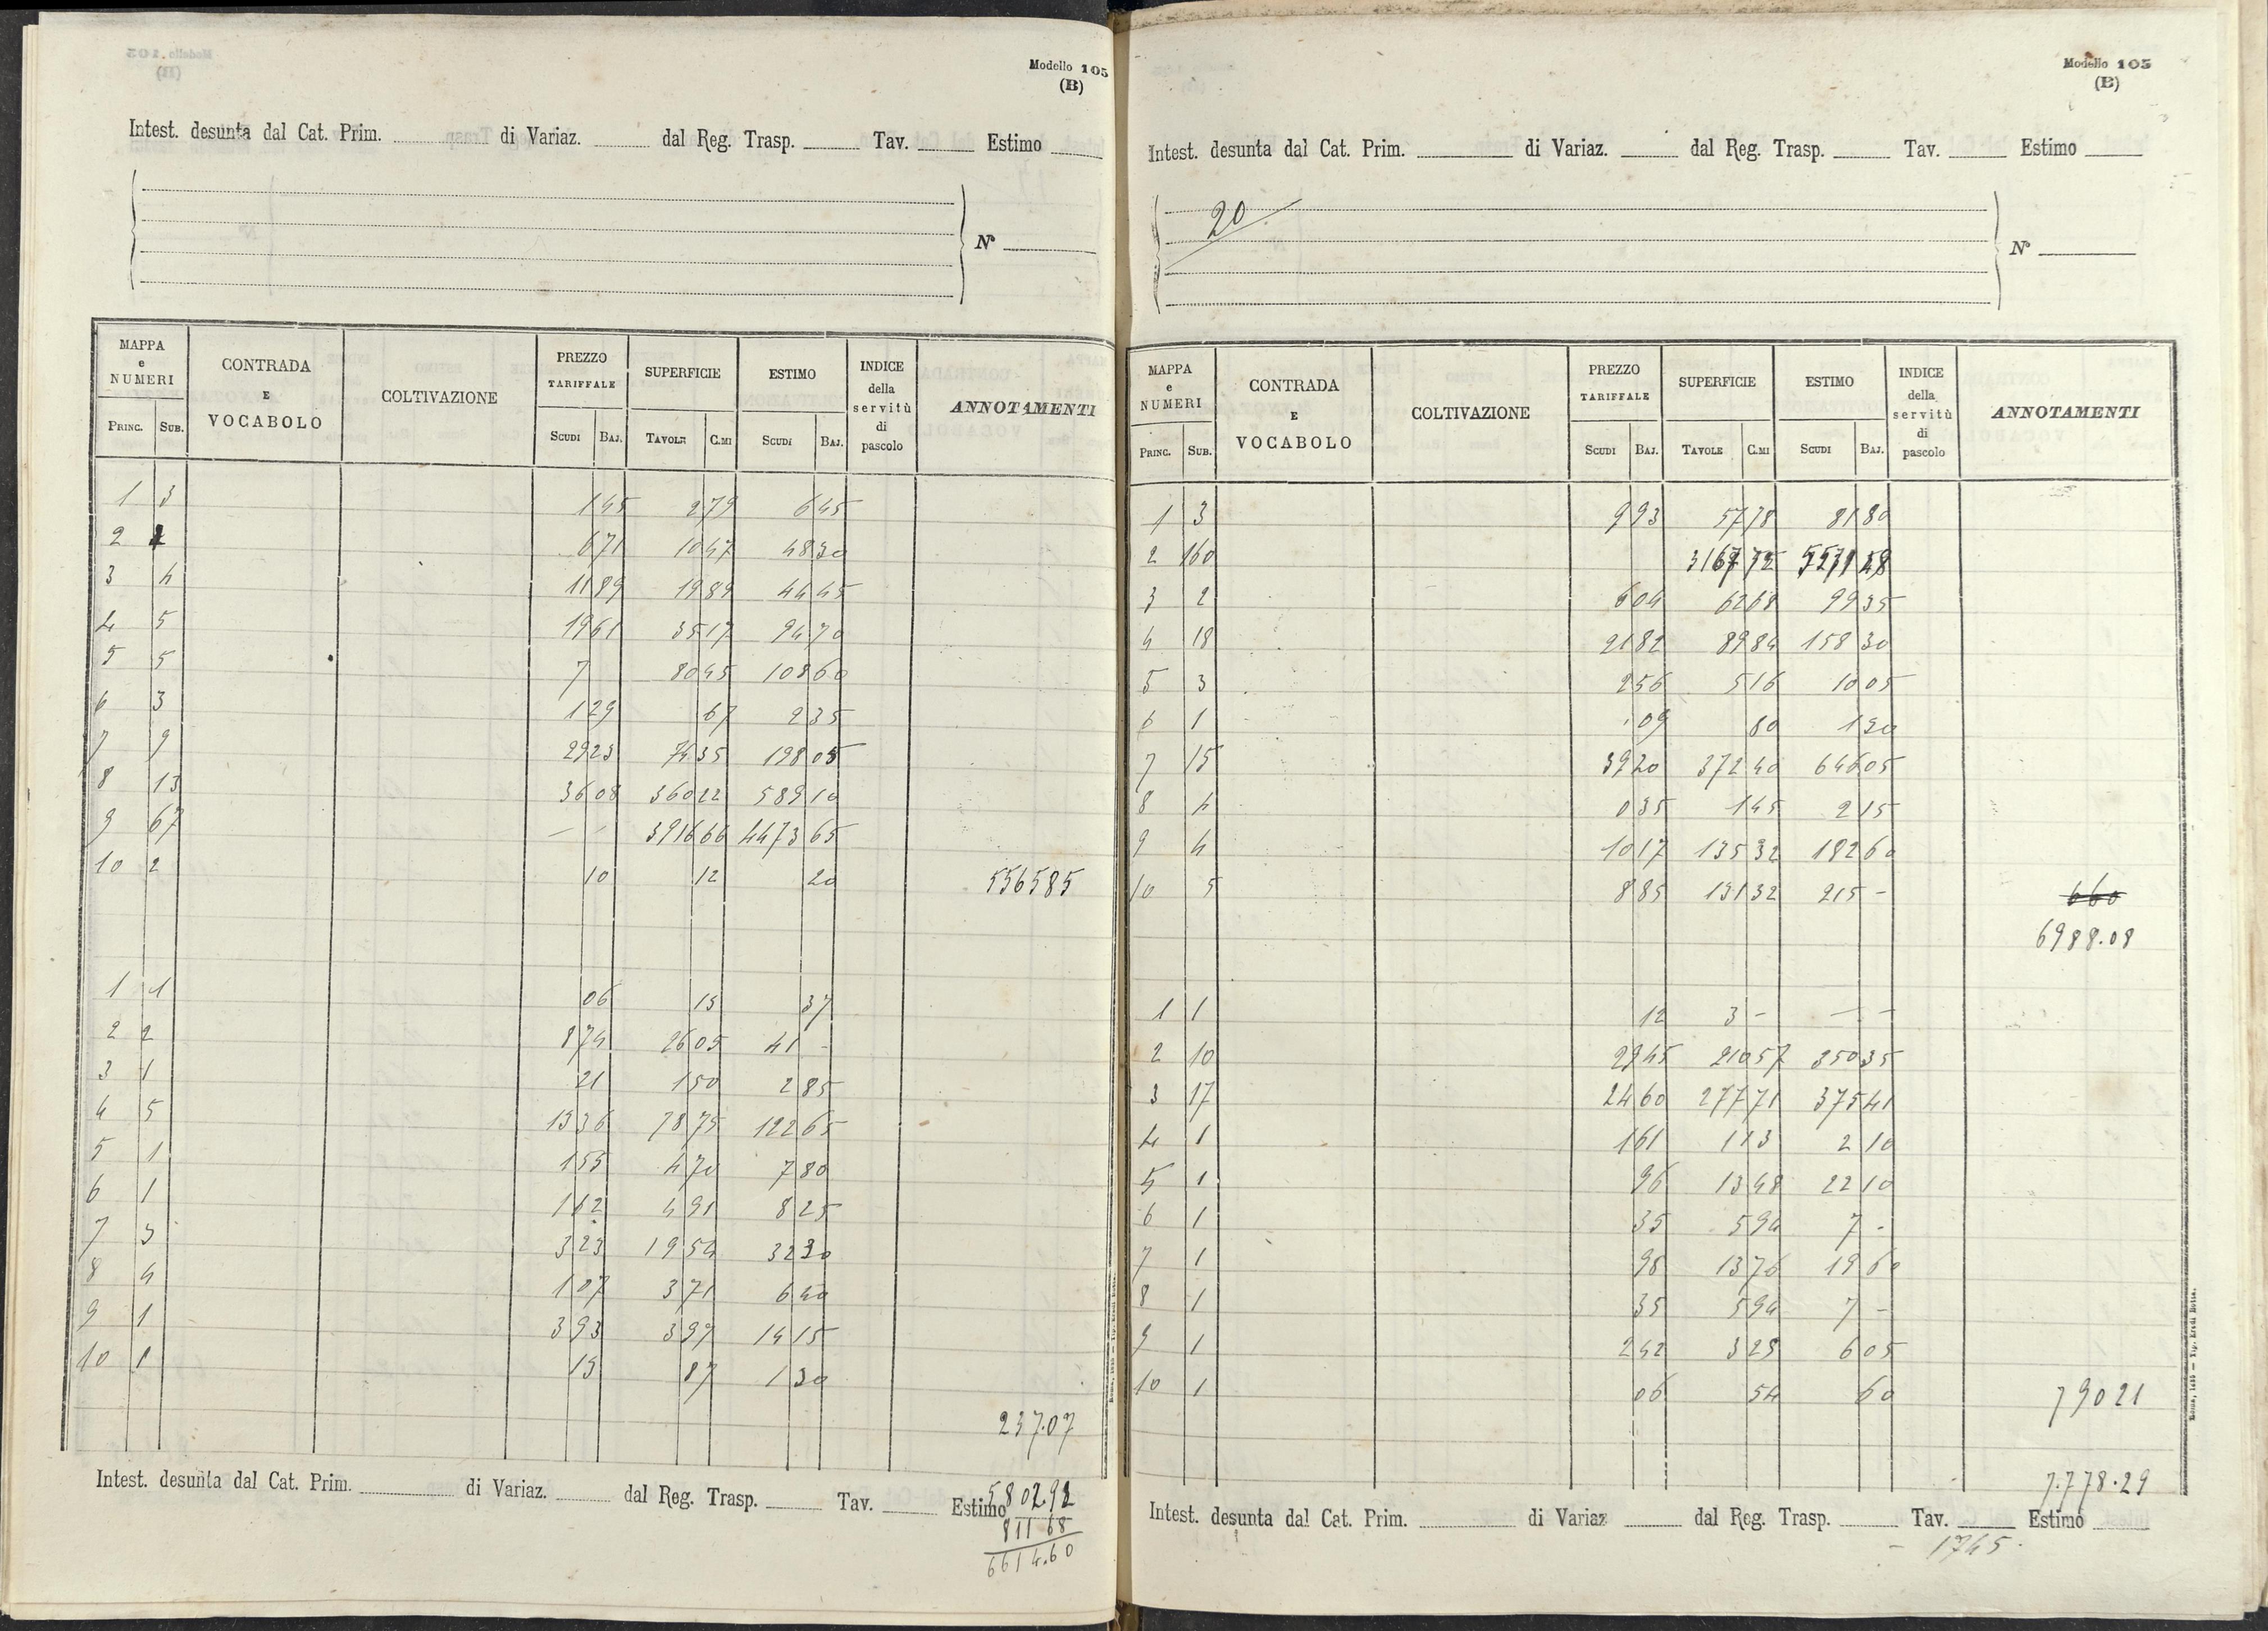 Modello 105
(B)
Intest. desunta dal Cat. Prim. di Variaz. dal Reg. Trasp. Tav. Estimo
N°
MAPPA e NUMERI CONTRADA E VOCABOLO COLTIVAZIONE PREZZO TARIFFALE SUPERFICIE ESTIMO INDICE della servitù di pascolo ANNOTAMENTI
PRINC. SUB. SCUDI BAJ. TAVOLE C.MI SCUDI BAJ.
1 3 1 45 2 79 6 45
2 1 6 71 10 47 48 30
3 4 11 89 19 89 44 45
4 5 19 61 35 17 94 70
5 5 7 80 45 108 60
6 3 1 29 67 2 35
7 9 29 23 74 35 198 05
8 13 36 08 360 22 589 10
9 67 - - 3916 66 4473 65
10 2 10 12 20 556585
1 1 06 15 37
2 2 8 74 26 05 41 -
3 1 21 1 50 2 85
4 5 13 36 78 75 122 65
5 1 1 55 4 70 7 80
6 1 1 62 4 91 8 25
7 3 3 23 19 54 32 30
8 4 1 07 3 71 6 40
9 1 3 93 3 97 14 15
10 1 15 87 1 30
237.07
Intest. desunta dal Cat. Prim. di Variaz. dal Reg. Trasp. Tav. Estimo 5802.92
811 68
6614.60
Modello 105
(B)
Intest. desunta dal Cat. Prim. di Variaz. dal Reg. Trasp. Tav. Estimo
20
N°
MAPPA e NUMERI CONTRADA E VOCABOLO COLTIVAZIONE PREZZO TARIFFALE SUPERFICIE ESTIMO INDICE della servitù di pascolo ANNOTAMENTI
PRINC. SUB. SCUDI BAJ. TAVOLE C.MI SCUDI BAJ.
1 3 9 93 57 78 81 80
2 160 3167 72 5571 28
3 2 6 04 62 68 99 35
4 18 21 82 89 84 158 30
5 3 2 56 5 16 10 05
6 1 09 80 1 30
7 15 39 20 372 40 646 05
8 4 0 35 1 45 2 15
9 4 10 17 135 32 182 60
10 5 8 85 131 32 215 - 660
6988.08
1 1 12 3 - - -
2 10 29 45 210 57 350 35
3 17 24 60 277 71 375 41
4 1 1 61 1 13 2 10
5 1 96 13 48 22 10
6 1 35 5 94 7 -
7 1 98 13 76 19 60
8 1 35 5 94 7 -
9 1 2 42 3 25 6 05
10 1 06 54 60 79021
7.778.29
Intest. desunta dal Cat. Prim. di Variaz dal Reg. Trasp. Tav. Estimo
- 1745.